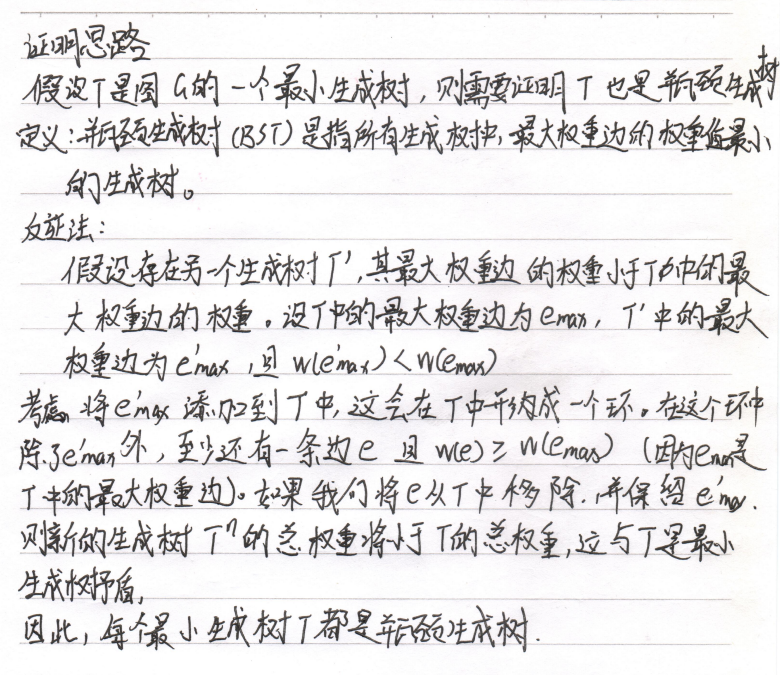 证明思路
假设T是图G的一个最小生成树，则需要证明T也是瓶颈生成树
定义：瓶颈生成树(BST)是指所有生成树中，最大权重边的权重值最小
的生成树。
反证法：
假设存在另一个生成树T'，其最大权重边的权重小于T中的最
大权重边的权重。设T中的最大权重边为emax，T'中的最大
权重边为e'max，且w(e'max)<w(emax)
考虑将e'max添加到T中，这会在T中形成一个环。在这个环中
除了e'max外，至少还有一条边e且w(e)≥w(emax)（因为emax是
T中的最大权重边）。如果我们将e从T中移除，并保留e'max.
则新的生成树T"的总权重将小于T的总权重，这与T是最小
生成树矛盾，
因此，每个最小生成树T都是瓶颈生成树.